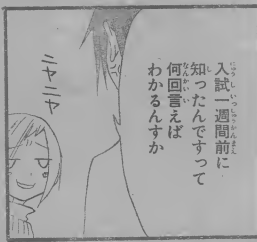 入試一週間前に
知ったんですって
何回言えば
わかるんすか
ニヤニヤ